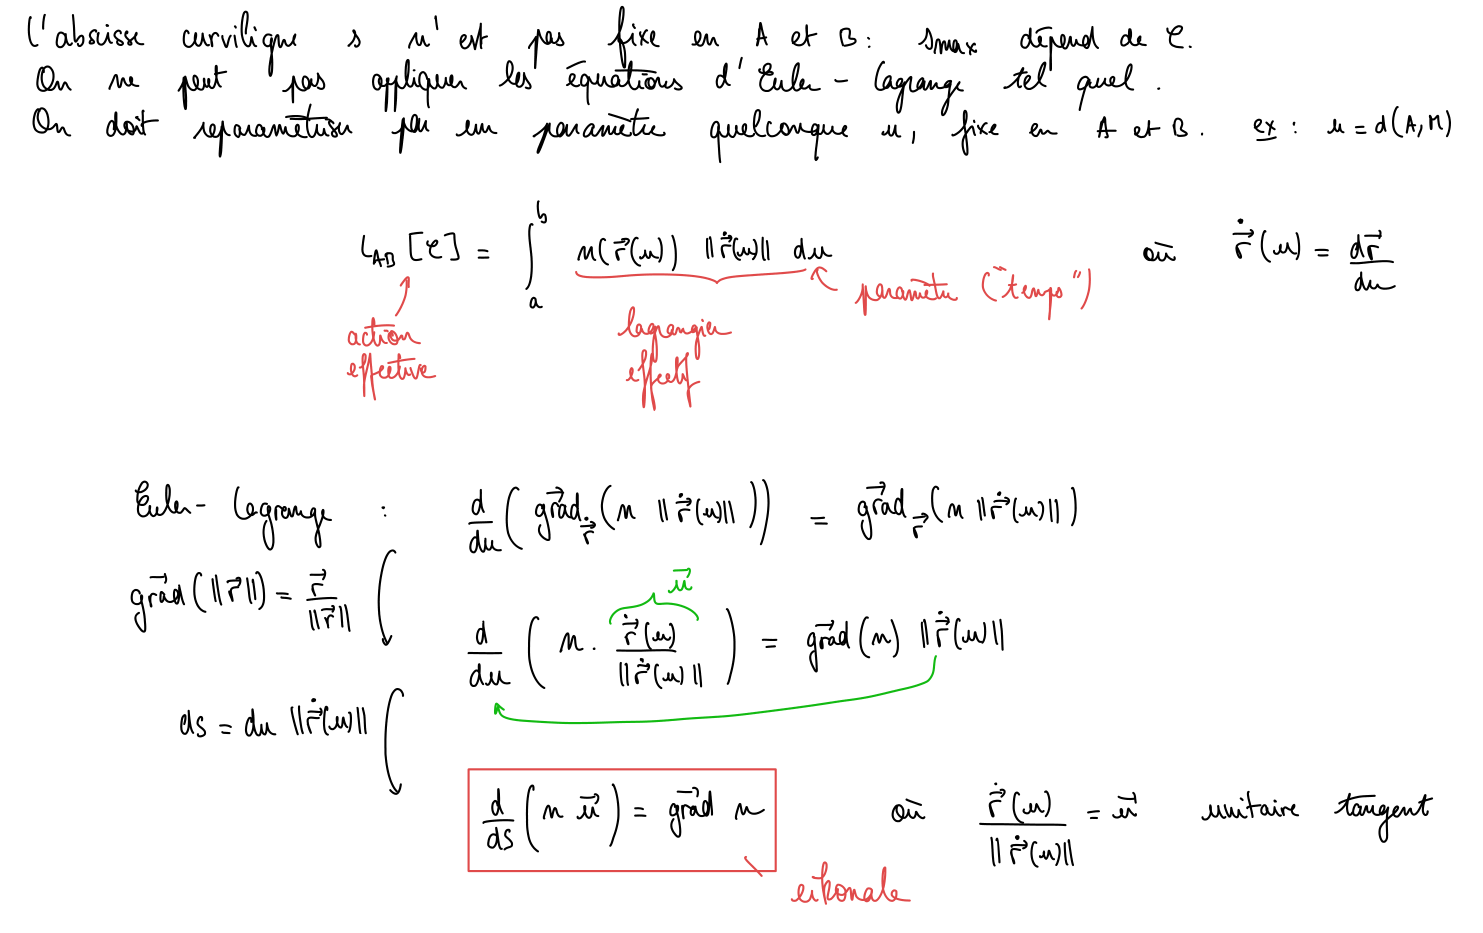 L'abscisse curviligne s n'est pas fixe en A et B : s_max dépend de 𝒞.
On ne peut pas appliquer les équations d'Euler-Lagrange tel quel.
On doit reparamétriser par un paramètre quelconque u, fixe en A et B. ex : u = d(A,M)
L_AB [𝒞] = ∫_a^b n(r⃗(u)) ||ṙ⃗(u)|| du où ṙ⃗(u) = dr⃗/du
paramètre ("temps")
action effective
lagrangien effectif
Euler-Lagrange : d/du ( grad⃗_ṙ⃗ (n ||ṙ⃗(u)||) ) = grad⃗_r⃗ (n ||ṙ⃗(u)||)
grad⃗(||r⃗||) = r⃗/||r⃗||
u⃗
d/du ( n · ṙ⃗(u)/||ṙ⃗(u)|| ) = grad⃗(n) ||ṙ⃗(u)||
ds = du ||ṙ⃗(u)||
d/ds (n u⃗) = grad⃗ n où ṙ⃗(u)/||ṙ⃗(u)|| = u⃗ unitaire tangent
eikonale